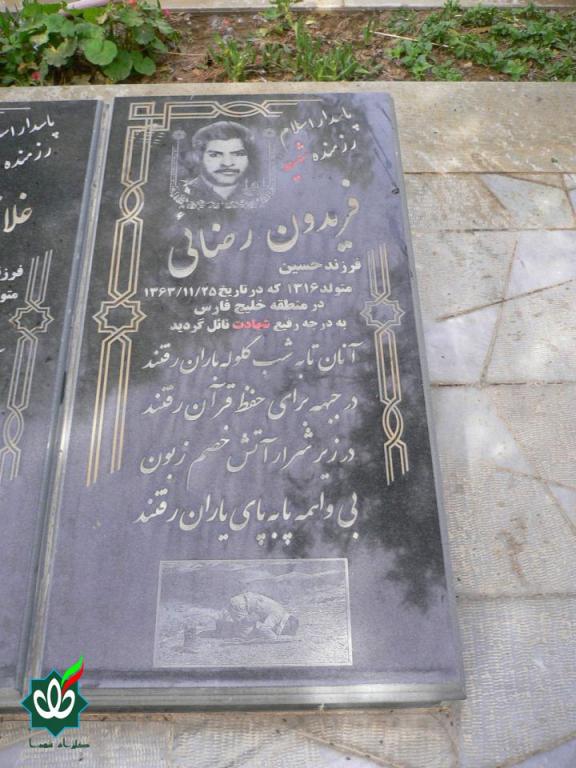 پاسدار اسلام
رزمنده شهید
فریدون رضائی
فرزند حسین
متولد ۱۳۱۶ که در تاریخ ۱۳۶۳/۱۱/۲۵
در منطقه خلیج فارس
به درجه رفیع شهادت نائل گردید
آنان تا به شب گلوله باران رفتند
در جبهه برای حفظ قرآن رفتند
در زیر شرار آتش خصم زبون
بی واهمه پا به پای یاران رفتند
پاسدار
رزمنده
فرزند
گلزار شهدا